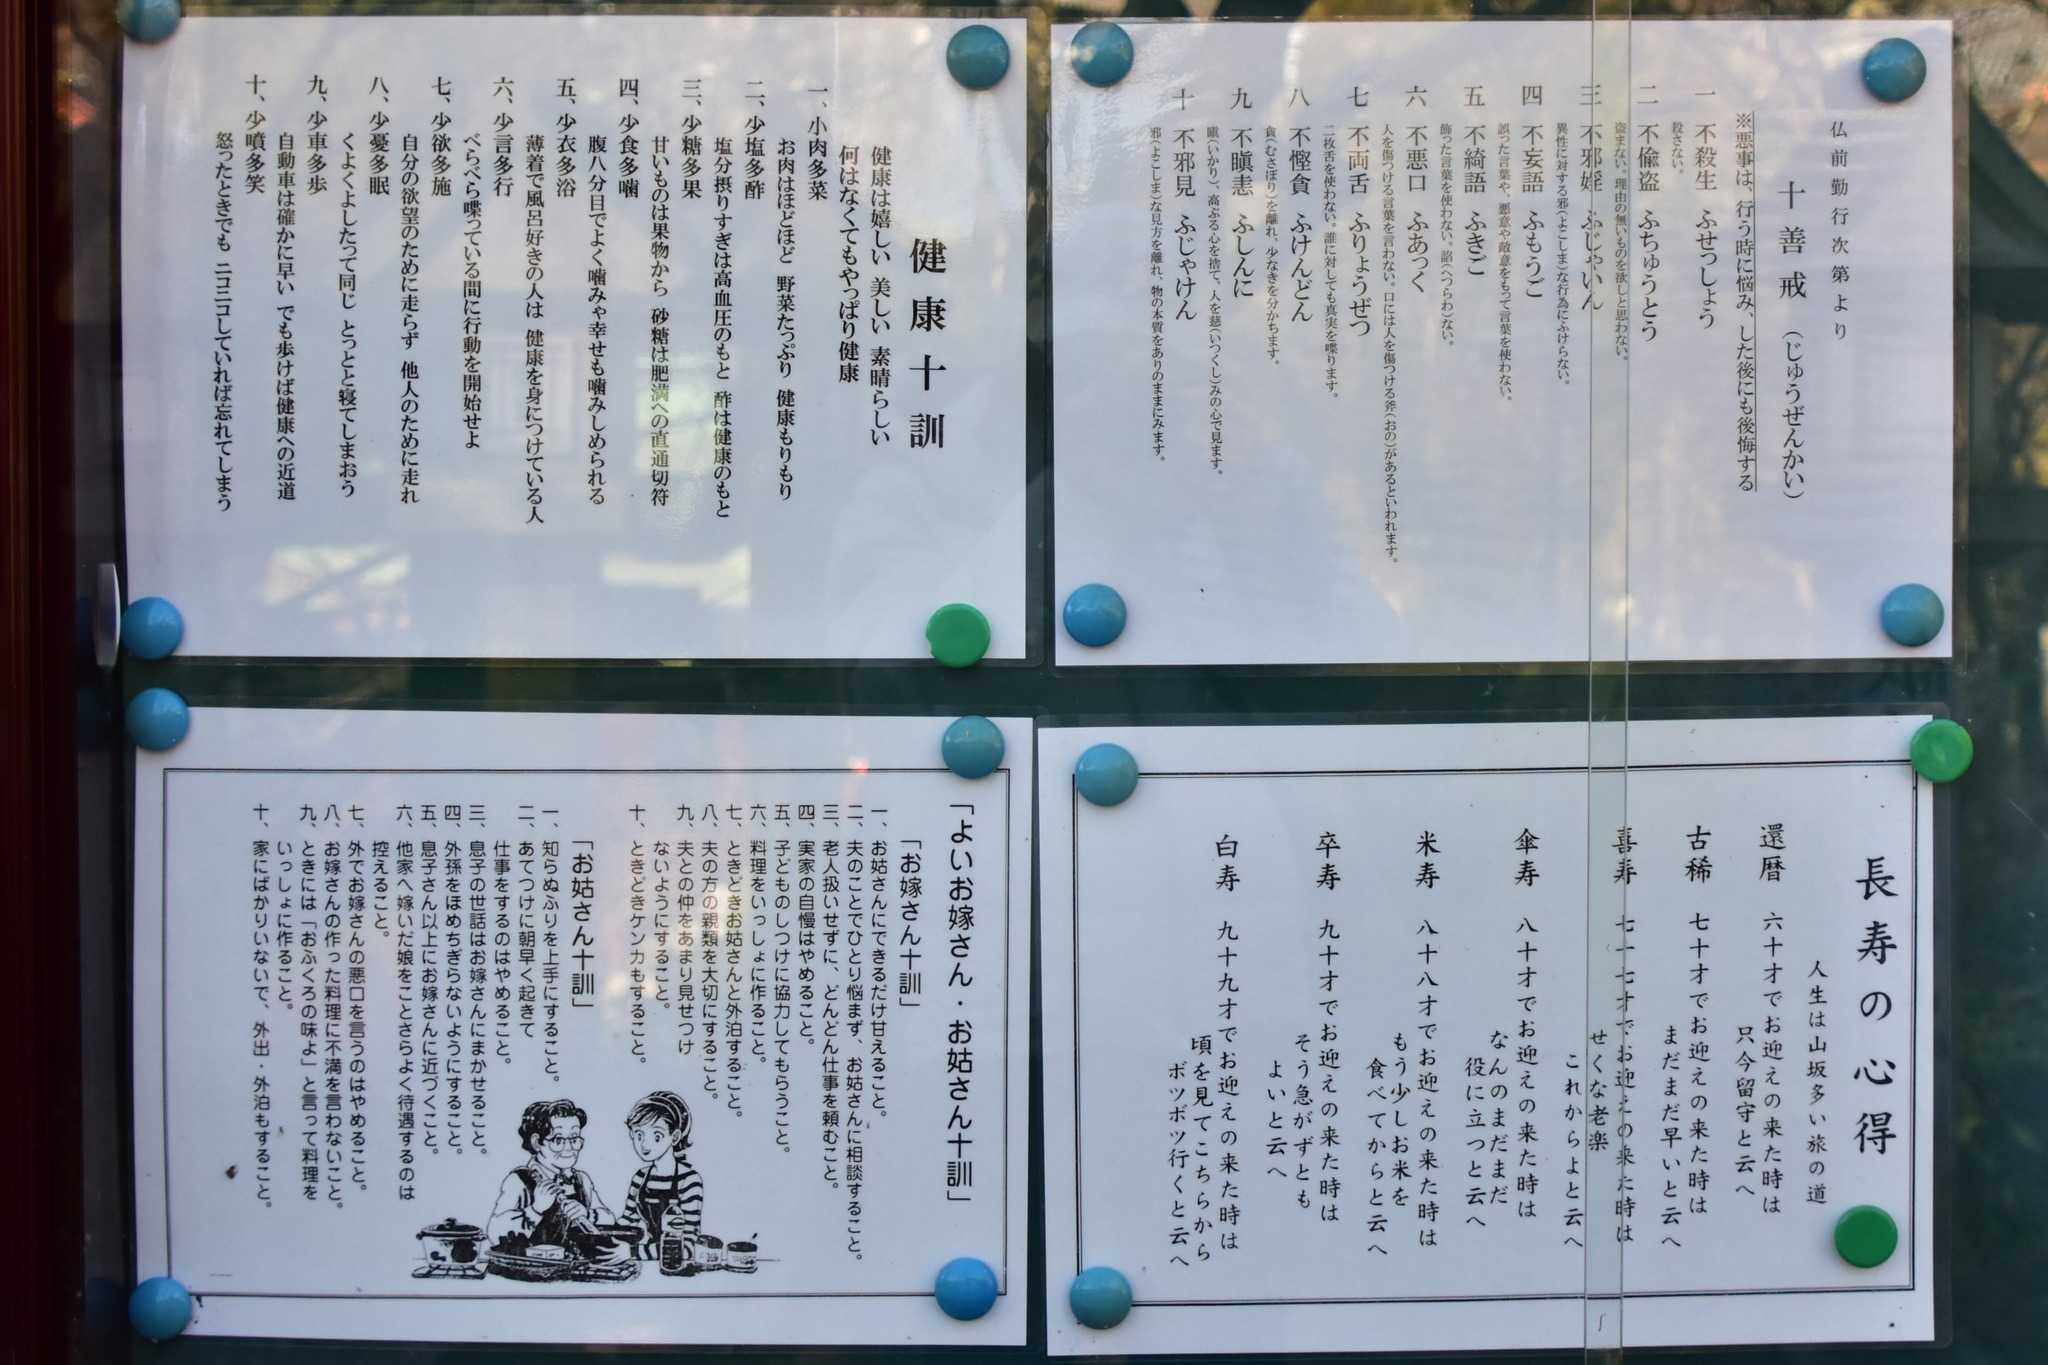 仏前勤行次第より
十善戒（じゅうぜんかい）
※悪事は、行う時に悩み、した後にも後悔する
一 不殺生 ふせっしょう
殺さない。
二 不偸盗 ふちゅうとう
盗まない。理由の無いものを欲しと思わない。
三 不邪婬 ふじゃいん
異性に対する邪（よこしま）な行為にふけらない。
四 不妄語 ふもうご
誤った言葉や、悪意や敵意をもって言葉を使わない。
五 不綺語 ふきご
飾った言葉を使わない。諂（へつらわ）ない。
六 不悪口 ふあっく
人を傷つける言葉を言わない。口には人を傷つける斧（おの）があるといわれます。
七 不両舌 ふりょうぜつ
二枚舌を使わない。誰に対しても真実を喋ります。
八 不慳貪 ふけんどん
貪（むさぼり）を離れ、少なきを分かちます。
九 不瞋恚 ふしんに
瞋（いかり）、高ぶる心を捨て、人を慈（いつくし）みの心で見ます。
十 不邪見 ふじゃけん
邪（よこしま）な見方を離れ、物の本質をありのままにみます。
健康十訓
健康は嬉しい 美しい 素晴らしい
何はなくてもやっぱり健康
一、小肉多菜
お肉はほどほど 野菜たっぷり 健康もりもり
二、少塩多酢
塩分摂りすぎは高血圧のもと 酢は健康のもと
三、少糖多果
甘いものは果物から 砂糖は肥満への直通切符
四、少食多噛
腹八分目でよく噛みゃ幸せも噛みしめられる
五、少衣多浴
薄着で風呂好きの人は 健康を身につけている人
六、少言多行
べらべら喋っている間に行動を開始せよ
七、少欲多施
自分の欲望のために走らず 他人のために走れ
八、少憂多眠
くよくよしたって同じ とっとと寝てしまおう
九、少車多歩
自動車は確かに早い でも歩けば健康への近道
十、少噴多笑
怒ったときでも ニコニコしていれば忘れてしまう
長寿の心得
人生は山坂多い旅の道
還暦 六十才でお迎えの来た時は
只今留守と云へ
古稀 七十才でお迎えの来た時は
まだまだ早いと云へ
喜寿 七十七才でお迎えの来た時は
せくな老楽
これからよと云へ
傘寿 八十才でお迎えの来た時は
なんのまだまだ
役に立つと云へ
米寿 八十八才でお迎えの来た時は
もう少しお米を
食べてからと云へ
卒寿 九十才でお迎えの来た時は
そう急がずとも
よいと云へ
白寿 九十九才でお迎えの来た時は
頃を見てこちらから
ボツボツ行くと云へ
「よいお嫁さん・お姑さん十訓」
「お嫁さん十訓」
一、お姑さんにできるだけ甘えること。
二、夫のことでひとり悩まず、お姑さんに相談すること。
三、老人扱いせずに、どんどん仕事を頼むこと。
四、実家の自慢はやめること。
五、子どものしつけに協力してもらうこと。
六、料理をいっしょに作ること。
七、ときどきお姑さんと外泊すること。
八、夫の方の親類を大切にすること。
九、夫との仲をあまり見せつけ
ないようにすること。
十、ときどきケンカもすること。
「お姑さん十訓」
一、知らぬふりを上手にすること。
二、あてつけに朝早く起きて
仕事をするのはやめること。
三、息子の世話はお嫁さんにまかせること。
四、外孫をほめちぎらないようにすること。
五、息子さん以上にお嫁さんに近づくこと。
六、他家へ嫁いだ娘をことさらよく待遇するのは
控えること。
七、外でお嫁さんの悪口を言うのはやめること。
八、お嫁さんの作った料理に不満を言わないこと。
九、ときには「おふくろの味よ」と言って料理を
いっしょに作ること。
十、家にばかりいないで、外出・外泊もすること。